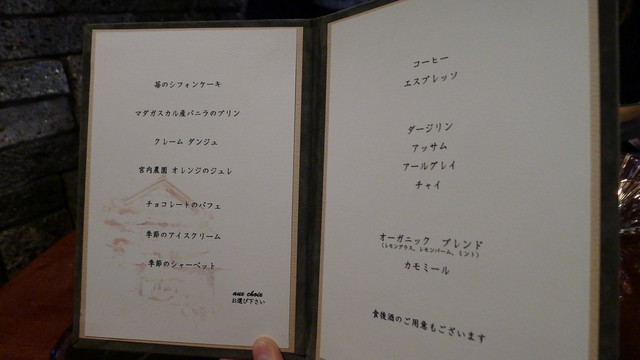 苺のシフォンケーキ
マダガスカル産バニラのプリン
クレーム ダンジュ
宮内農園 オレンジのジュレ
チョコレートのパフェ
季節のアイスクリーム
季節のシャーベット
aux choix
お選び下さい
コーヒー
エスプレッソ
ダージリン
アッサム
アールグレイ
チャイ
オーガニック ブレンド
(レモングラス、レモンバーム、ミント)
カモミール
食後酒のご用意もございます